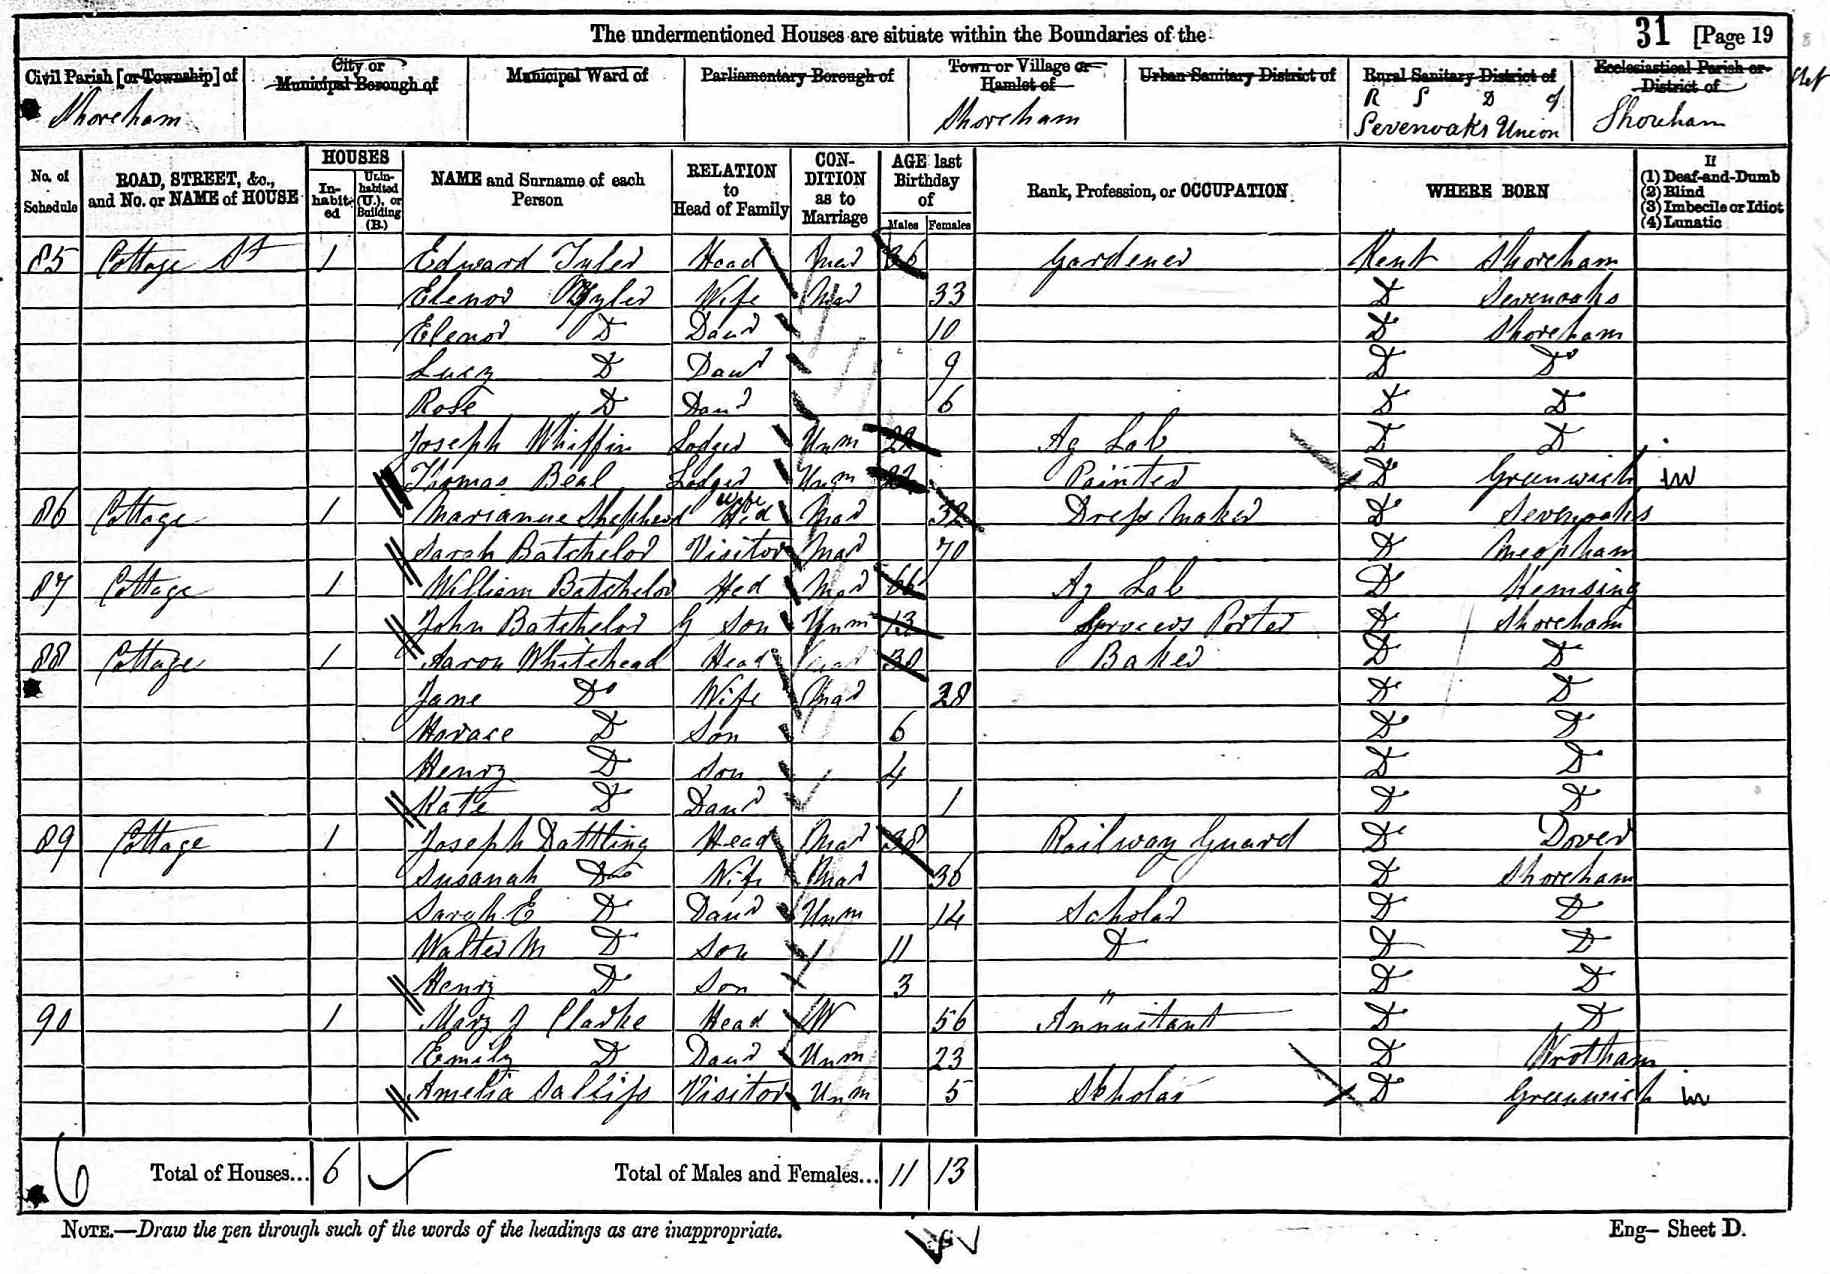 The undermentioned Houses are situate within the Boundaries of the
31 [Page 19
Civil Parish [or Township] of
City or Municipal Borough of
Municipal Ward of
Parliamentary Borough of
Town or Village or Hamlet of
Urban Sanitary District of
Rural Sanitary District of
Ecclesiastical Parish or District of
Shoreham
Shoreham
R S D of
Sevenoaks Union
Shoreham
No. of Schedule
ROAD, STREET, &c., and No. or NAME of HOUSE
HOUSES
In-habit-ed
Unin-habited (U.), or Building (B.)
NAME and Surname of each Person
RELATION to Head of Family
CON-DITION as to Marriage
AGE last Birthday of
Males Females
Rank, Profession, or OCCUPATION
WHERE BORN
If
(1) Deaf-and-Dumb
(2) Blind
(3) Imbecile or Idiot
(4) Lunatic
85 Cottage St 1 Edward Tyler Head Mar 36 Gardener Kent Shoreham
Elenor Tyler Wife Mar 33 Do Sevenoaks
Elenor Do Daur 10 Do Shoreham
Lucy Do Daur 9 Do Do
Rose Do Daur 6 Do Do
Joseph Whiffin Lodger Unm 22 Ag Lab Do Do
Thomas Beal Lodger Unm Painter Do Greenwich
86 Cottage 1 Marianne Shepherd Wife Hed Mar 32 Dress Maker Do Sevenoaks
Sarah Batchelor Visitor Mar 70 Do Meopham
87 Cottage 1 William Batchelor Hed Mar 66 Ag Lab Do Kemsing
John Batchelor G Son Unm 13 Grocers Porter Do Shoreham
88 Cottage 1 Aaron Whitehead Head Mar 30 Baker Do Do
Jane Do Wife Mar 28 Do Do
Horace Do Son 6 Do Do
Henry Do Son 4 Do Do
Kate Do Daur 1 Do Do
89 Cottage 1 Joseph Dattling Head Mar 38 Railway Guard Do Dover
Susanah Do Wife Mar 36 Do Shoreham
Sarah E Do Daur Unm 14 Scholar Do Do
Walter M Do Son 11 Do Do Do
Henry Do Son 3 Do Do
90 1 Mary J Clarke Head W 56 Annuitant Do Do
Emily Do Daur Unm 23 Do Wrotham
Amelia Visitor Unm 5 Scholar Do Greenwich
6 Total of Houses... 6 Total of Males and Females... 11 13
NOTE.—Draw the pen through such of the words of the headings as are inappropriate.
Eng— Sheet D.